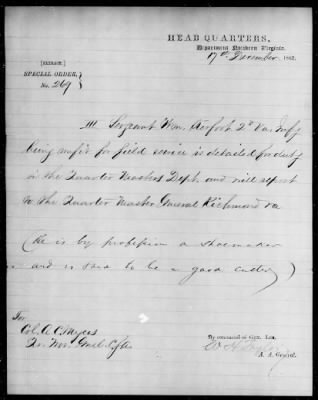 HEAD QUARTERS,
Department Northern Virginia,
17th December, 1862.
[EXTRACT.]
SPECIAL ORDER,
No. 269
III Sergeant Wm. 2d Va. Infy
being unfit for field service is detailed for duty
in the Quarter Masters Dept. and will report
to the Quarter Master General Richmond Va
(He is by profession a shoemaker
and is said to be a good cutter)
For
Col. A. C. Myers
Qr. Mr. Genl. C.S.A.
By command of Gen. Lee,
W H Taylor
A. A. General.